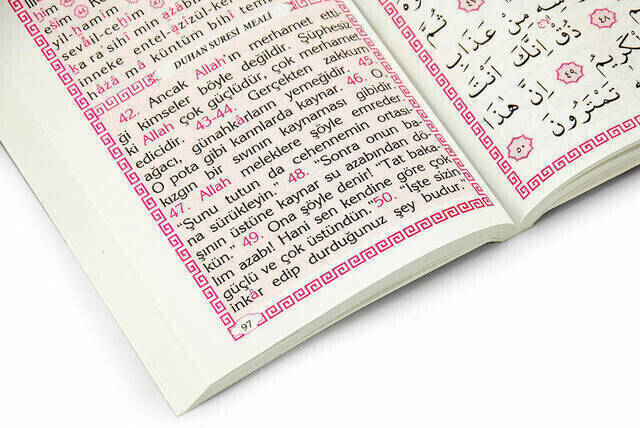 yil-hamîm
sevâil-cehîm
kara'sihî min azâbil
inneke entel-azîzül-ke
hâzâ mâ küntüm bihî tem
DUHAN SURESİ MEALİ
42. Ancak Allah'ın merhamet etti-
ği kimseler böyle değildir. Şüphesiz
ki Allah çok güçlüdür, çok merhamet
edicidir. 43-44. Gerçekten zakkum
ağacı, günahkâların yemeğidir. 45.
O pota gibi karınlarda kaynar. 46. O
kızgın bir sıvının kaynaması gibidir.
47. Allah meleklere şöyle emreder.
"Şunu tutun da cehennemin ortası-
na sürükleyin." 48. "Sonra onun ba-
şının üstüne kaynar su azabından dö-
kün." 49. Ona şöyle denir! "Tat baka-
lım azabı! Hani sen kendine göre çok
güçlü ve çok üstündün."50. "İşte sizin
inkâr edip durduğunuz şey budur.
97
مِنْ عَذَابِ
٤٨ ذُقْ اِنَّكَ اَنْتَ
الْكَرِيمُ ٤٩ اِنَّ هٰذَا
تَمْتَرُونَ ٥٠